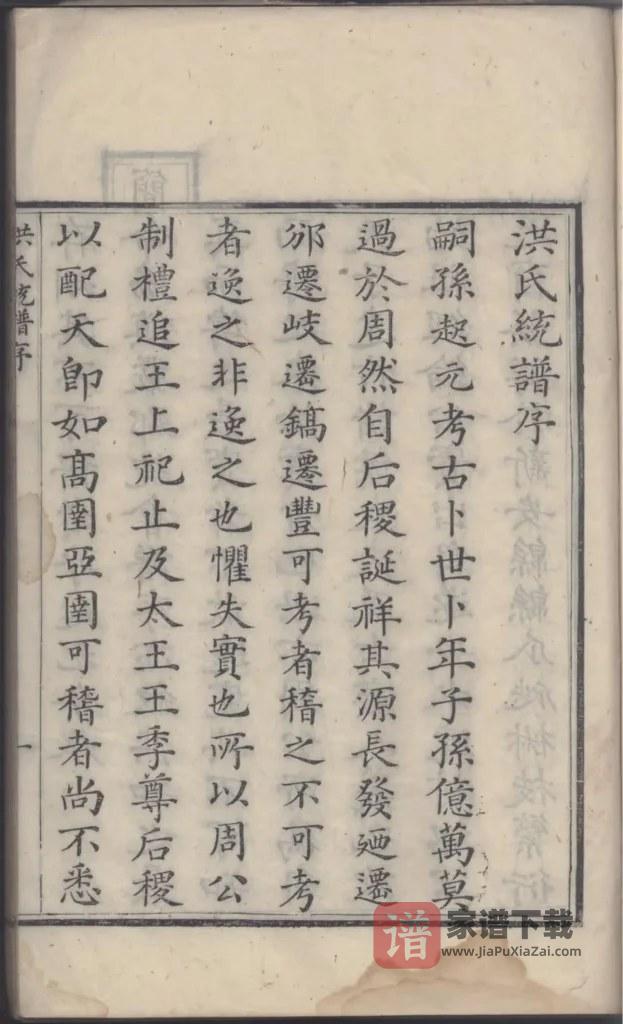 洪氏統譜序
嗣孫起元考古卜世卜年子孫億萬莫
過於周然自后稷誕祥其源長發廼遷
邠遷岐遷鎬遷豐可考者稽之不可考
者逸之非逸之也懼失實也所以周公
制禮追王上祀止及太王王季尊后稷
以配天卽如髙圉亞圉可稽者尚不悉
洪氏統譜序
一
谱 家谱下载
www.JiaPuXiaZai.com